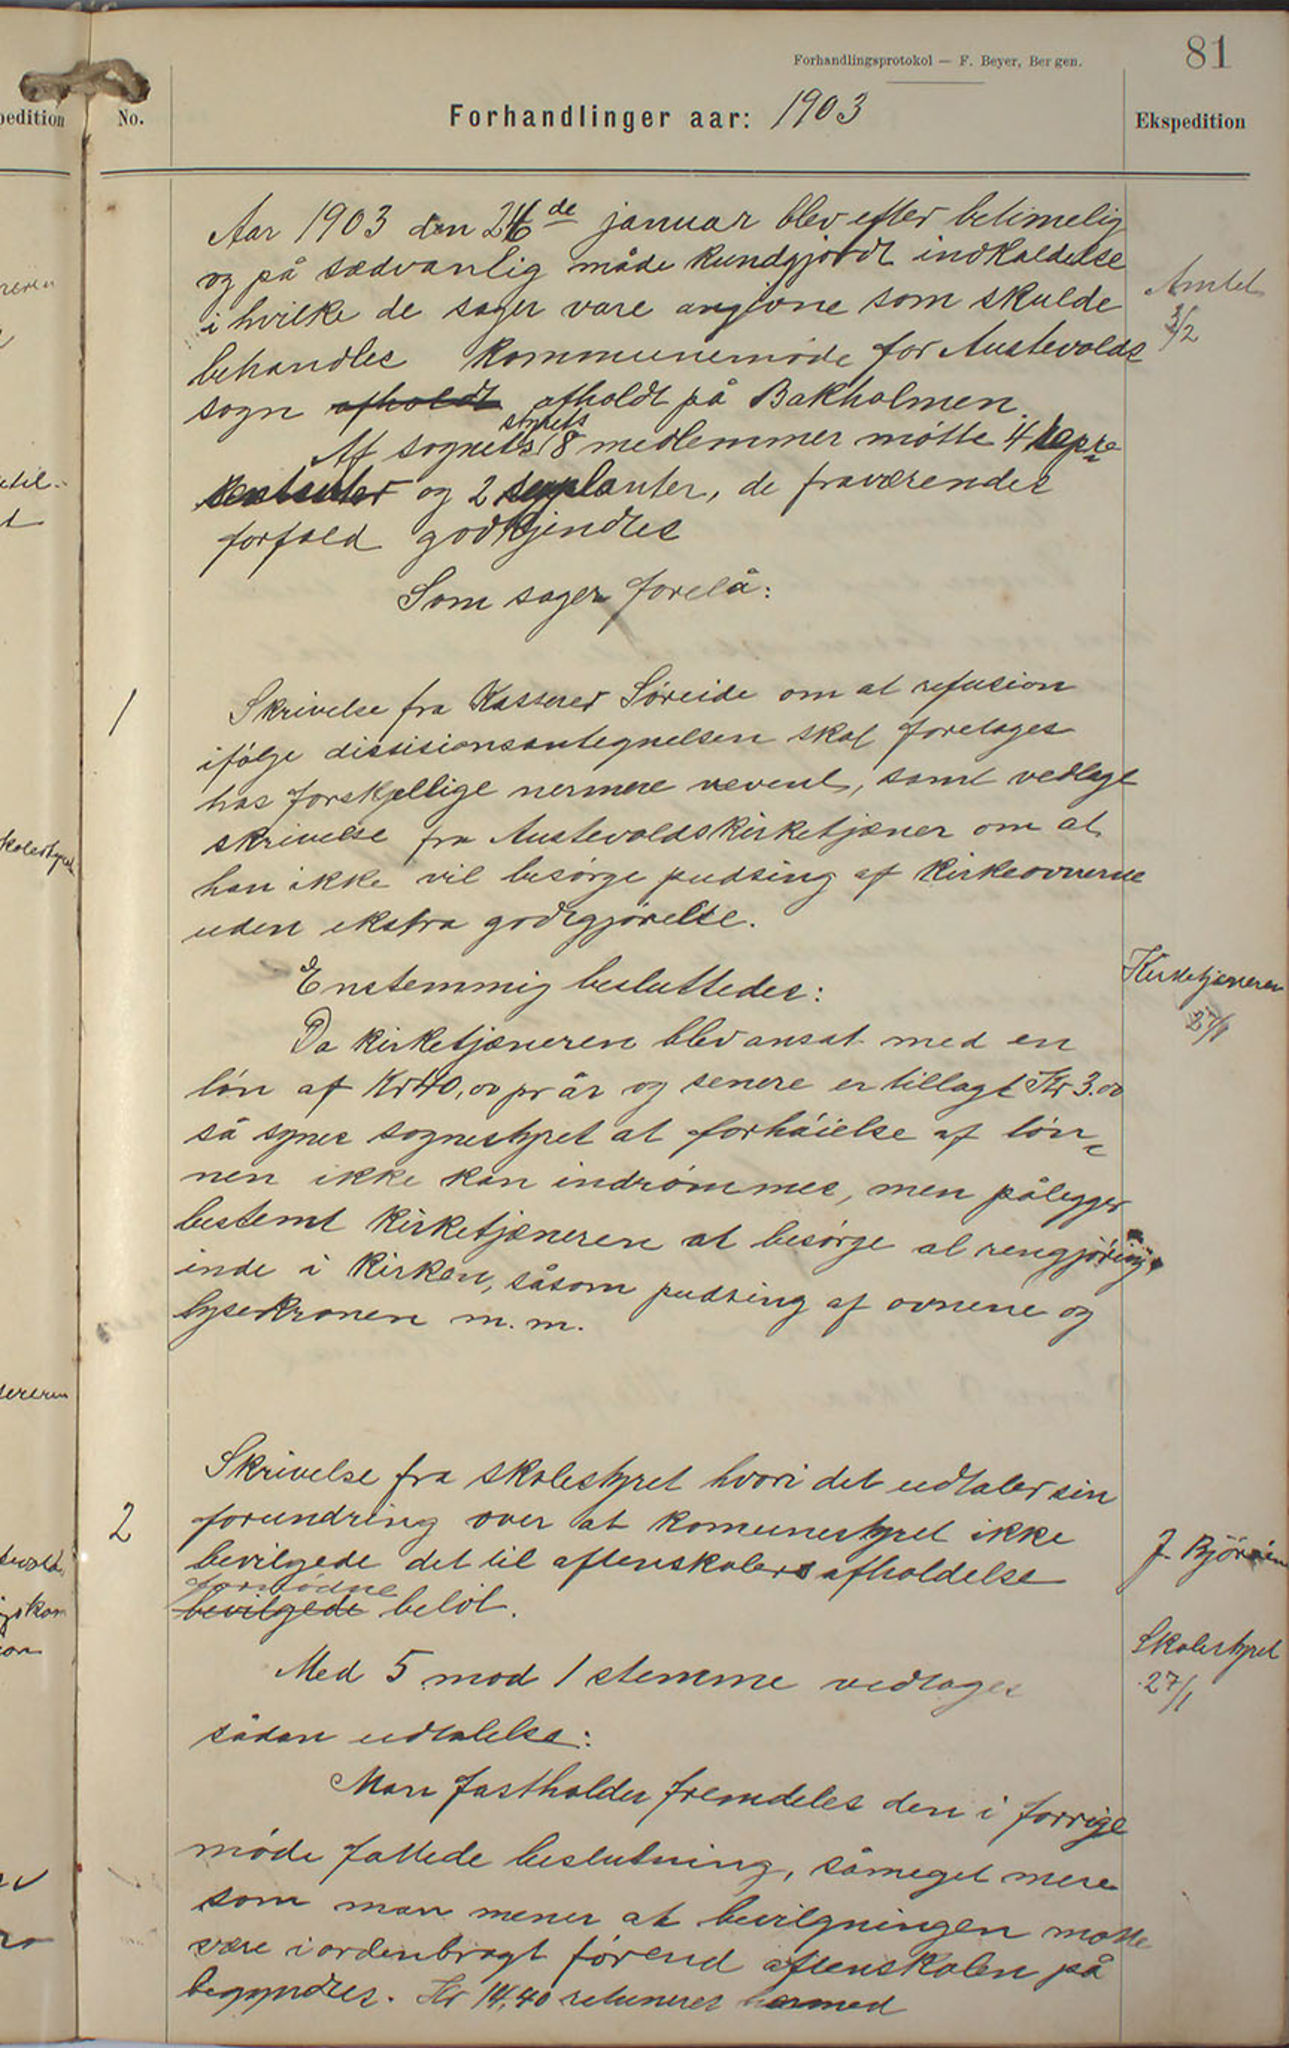 81
Forhandlingsprotokol — F. Beyer, Bergen.
pedition
No.
Forhandlinger aar: 1903
Ekspedition
Aar 1903 den 24de januar blev efter betimelig
og på sædvanlig måde kundgjordt indkaldelse
i hvilke de sager vare angivne som skulde
behandles kommunemøde for Austevolds
sogn afholdt afholdt på Bakholmen.
Amtet
3/2
Af sognets styrets 8 medlemmer møtte 4 repre
sentanter og 2 suplanter, de fraværendes
forfald godkjendtes
Som sager forelå:
1
Skrivelse fra Kasserer Søreide om at refusion
ifølge dissisionsantegnelsen skal foretages
hos forskjellige nermere nevent, samt vedlagt
skrivelse fra Austevoldskirketjæner om at
han ikke vil besørge pudsing af kirkeovnerne
uden ekstra godtgjørelse.
Enstemmig besluttedes:
Kirketjæneren
27/1
Da kirketjæneren blev ansat med en
løn af Kr 40,00 pr år og senere er tillagt Kr 3.00
så synes sognestyret at forhøielse af løn-
nen ikke kan indrømmes, men pålegger
bestemt kirketjæneren at besørge al rengjøring
inde i kirken, såsom pudsing af ovnene og
lysekronen m.m.
2
Skrivelse fra skolestyret hvori det udtaler sin
forundring over at komunestyret ikke
bevilgede det til aftenskolers afholdelse
fornødne
bevilgede beløb.
J. Bjørnen
Skolestyret
27/1
Med 5 mod 1 stemme vedtages
sådan udtalelse:
Man fastholder fremdeles den i forrige
møde fattede beslutning, såmeget mere
som man mener at bevilgningen måtte
være i ordenbragt førend aftenskolen på
begyndtes. Kr 14,40 retuneres hermed